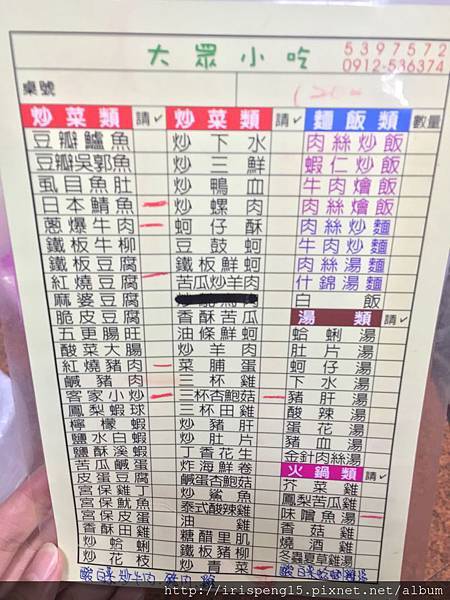 大眾小吃
5397572
0912-536374
桌號
炒菜類 請✓
豆瓣鱸魚
豆瓣吳郭魚
虱目魚肚
日本鯖魚
蔥爆牛肉
鐵板牛柳
鐵板豆腐
紅燒豆腐
麻婆豆腐
脆皮豆腐
五更腸旺
酸菜大腸
紅燒豬肉
鹹豬肉
客家小炒
鳳梨蝦球
檸檬蝦
鹽水白蝦
鹽酥溪蝦
苦瓜鹹蛋
皮蛋豆腐
宮保雞丁
宮保魷魚
宮保皮蛋
香酥田雞
炒蛤蜊
炒花枝
炒菜類 請✓
炒下水
炒三鮮
炒鴨血
炒螺肉
蚵仔酥
豆鼓蚵
鐵板鮮蚵
苦瓜炒羊肉
香酥苦瓜
油條鮮蚵
炒羊肉
菜脯蛋
三杯雞
三杯杏鮑菇
三杯田雞
炒豬肝
炒肚片
丁香花生
炸海鮮卷
鹹蛋杏鮑菇
炒鯊魚
泰式酸辣雞
油雞
糖醋里肌
鐵板豬柳
炒青菜
麵飯類 數量
肉絲炒飯
蝦仁炒飯
牛肉燴飯
肉絲燴飯
肉絲炒麵
牛肉炒麵
肉絲湯麵
什錦湯麵
白飯
湯類 請✓
蛤蜊湯
肚片湯
蚵仔湯
下水湯
豬肝湯
酸辣湯
蛋花湯
豬血湯
金針肉絲湯
火鍋類 請✓
芥菜雞
鳳梨苦瓜雞
味噌魚湯
香菇雞
燒酒雞
冬蟲夏草雞湯
http://irispeng15.pixnet.net/album